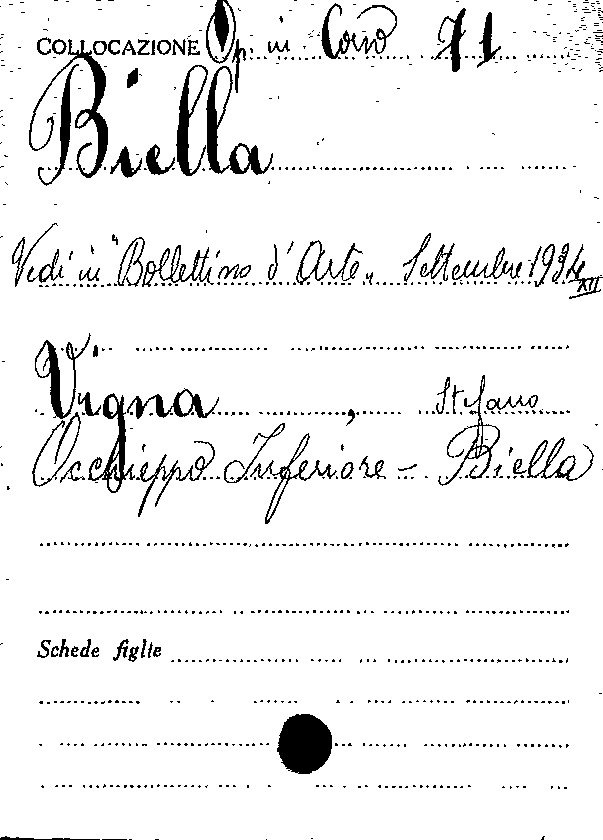 COLLOCAZIONE Op. in Corso 71
Biella
Vedi in "Bollettino d'Arte„ Settembre 1934 XII
Vigna , Stefano
Occhieppo Inferiore – Biella
Schede figlie